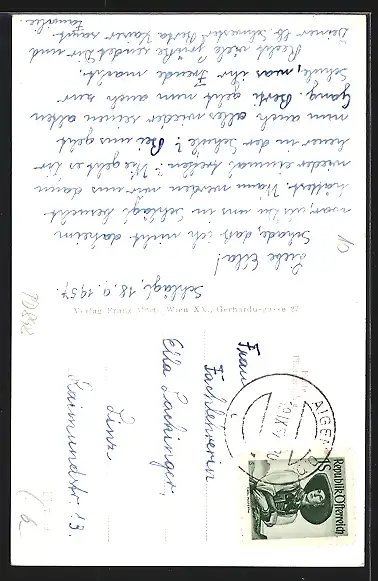 Schlägl, 18.9.1957.
Liebe Ella!
Schade, daß ich nicht daheim
war, als du uns in Schlägl besucht
hattest. Wann werden wir uns dann
wieder einmal treffen? Wie geht es Dir
heuer in der Schule? Bei uns geht
nun auch alles wieder seinen alten
Gang. Berti geht nun auch zur
Schule, was ihr Freude macht.
Recht viele Grüße sendet Dir und
Deiner lb. Schwester Herta Kaiser samt
Familie.
Verlag Franz Mörtl, Wien XX., Gerhardusgasse 27
Frau
Fachlehrerin
Ella Lachinger,
Linz
Raimundstr. 13.
AIGEN
Republik Österreich
1S
10